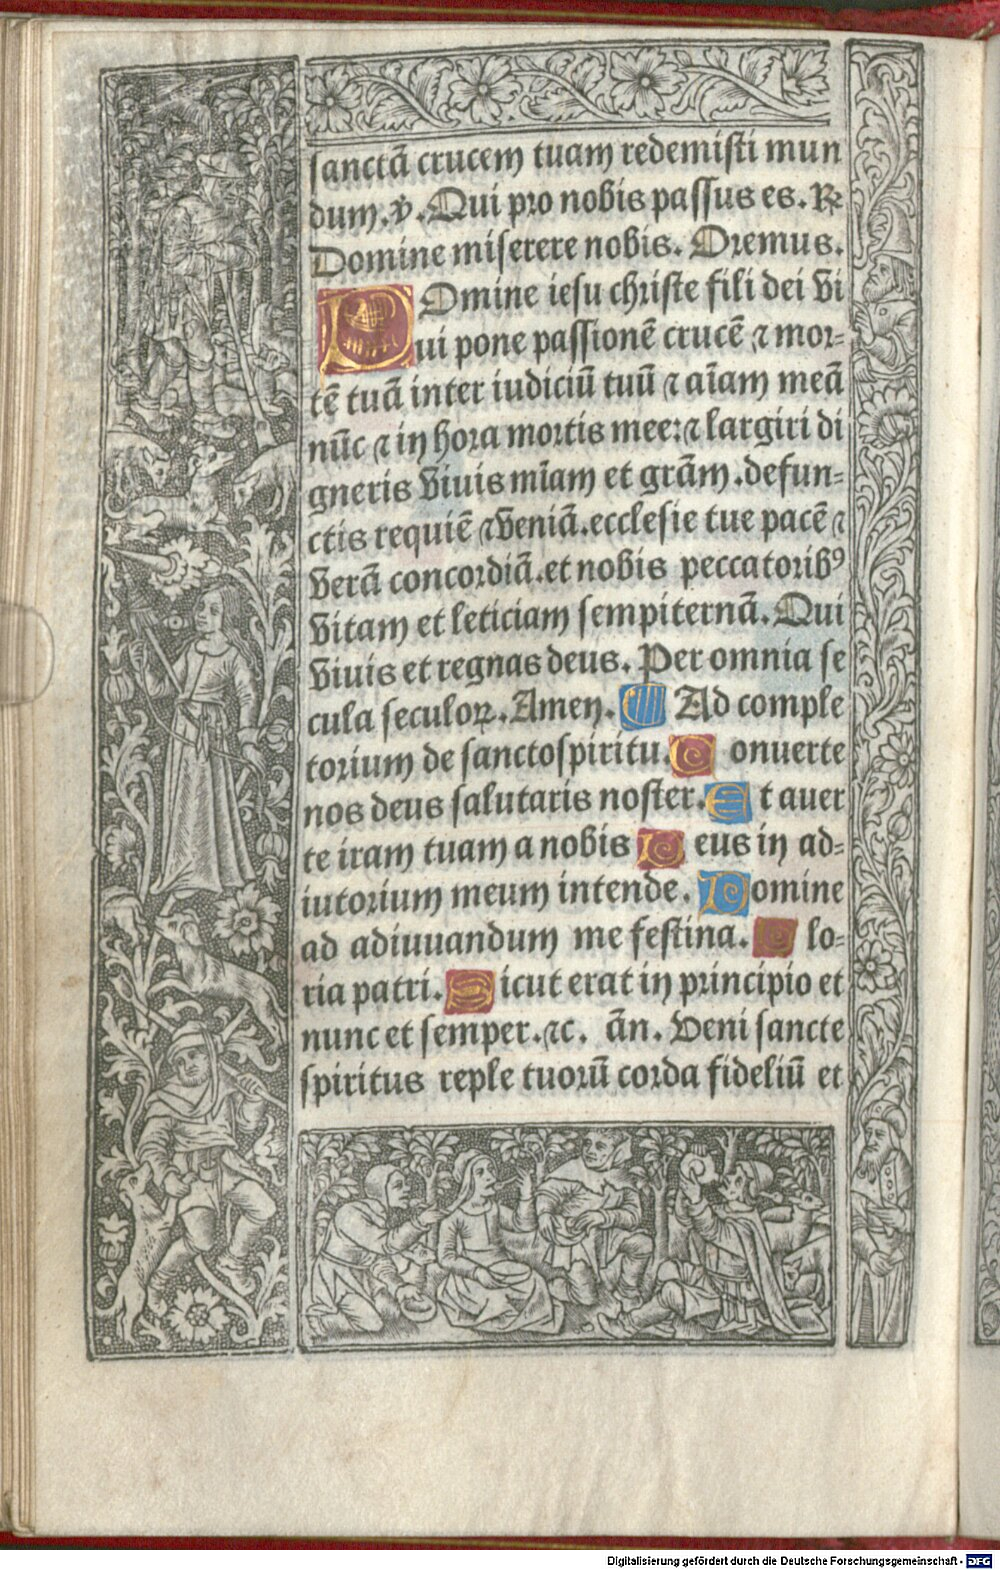 sanctā crucem tuam redemisti mun
dum. ℣. Qui pro nobis passus es. ℟
Domine miserere nobis. Oremus.
Domine iesu christe fili dei vi
ui pone passionē crucē ⁊ mor=
tē tuā inter iudiciū tuū ⁊ aīam meā
nūc ⁊ in hora mortis mee: ⁊ largiri di
gneris viuis mīam et grām. defun=
ctis requiē ⁊ veniā. ecclesie tue pacē ⁊
verā concordiā. et nobis peccatoribꝰ
vitam et leticiam sempiternā. Qui
viuis et regnas deus. Per omnia se
cula seculoꝝ. Amen. Ad comple
torium de sanctospiritu. Conuerte
nos deus salutaris noster. Et auer
te iram tuam a nobis Deus in ad=
iutorium meum intende. Domine
ad adiuuandum me festina. Glo=
ria patri. Sicut erat in principio et
nunc et semper. ⁊c. ān. Veni sancte
spiritus reple tuorū corda fideliū et
Digitalisierung gefördert durch die Deutsche Forschungsgemeinschaft - DFG